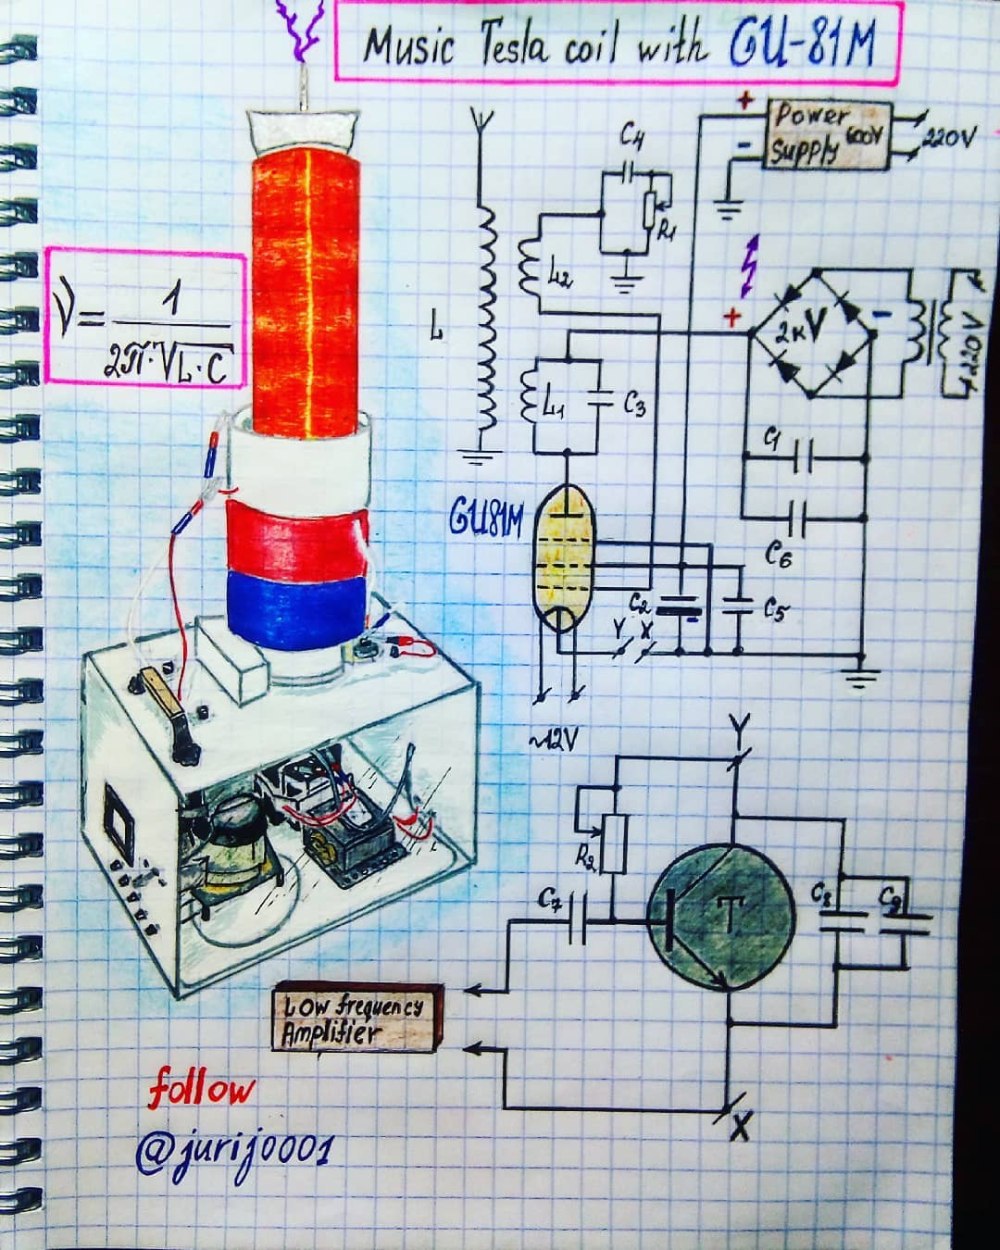 Music Tesla coil with GU-81M
ν = 1 / 2π·√L·C
L
C4
R1
L2
Power
Supply 600V
+
-
220V
2кV
+
-
~220V
L1
C3
GU81M
C1
C6
C2
C5
-
Y X
~12V
Y
R2
C7
T
C8
C9
X
Low frequency
Amplifier
follow
@jurij0001